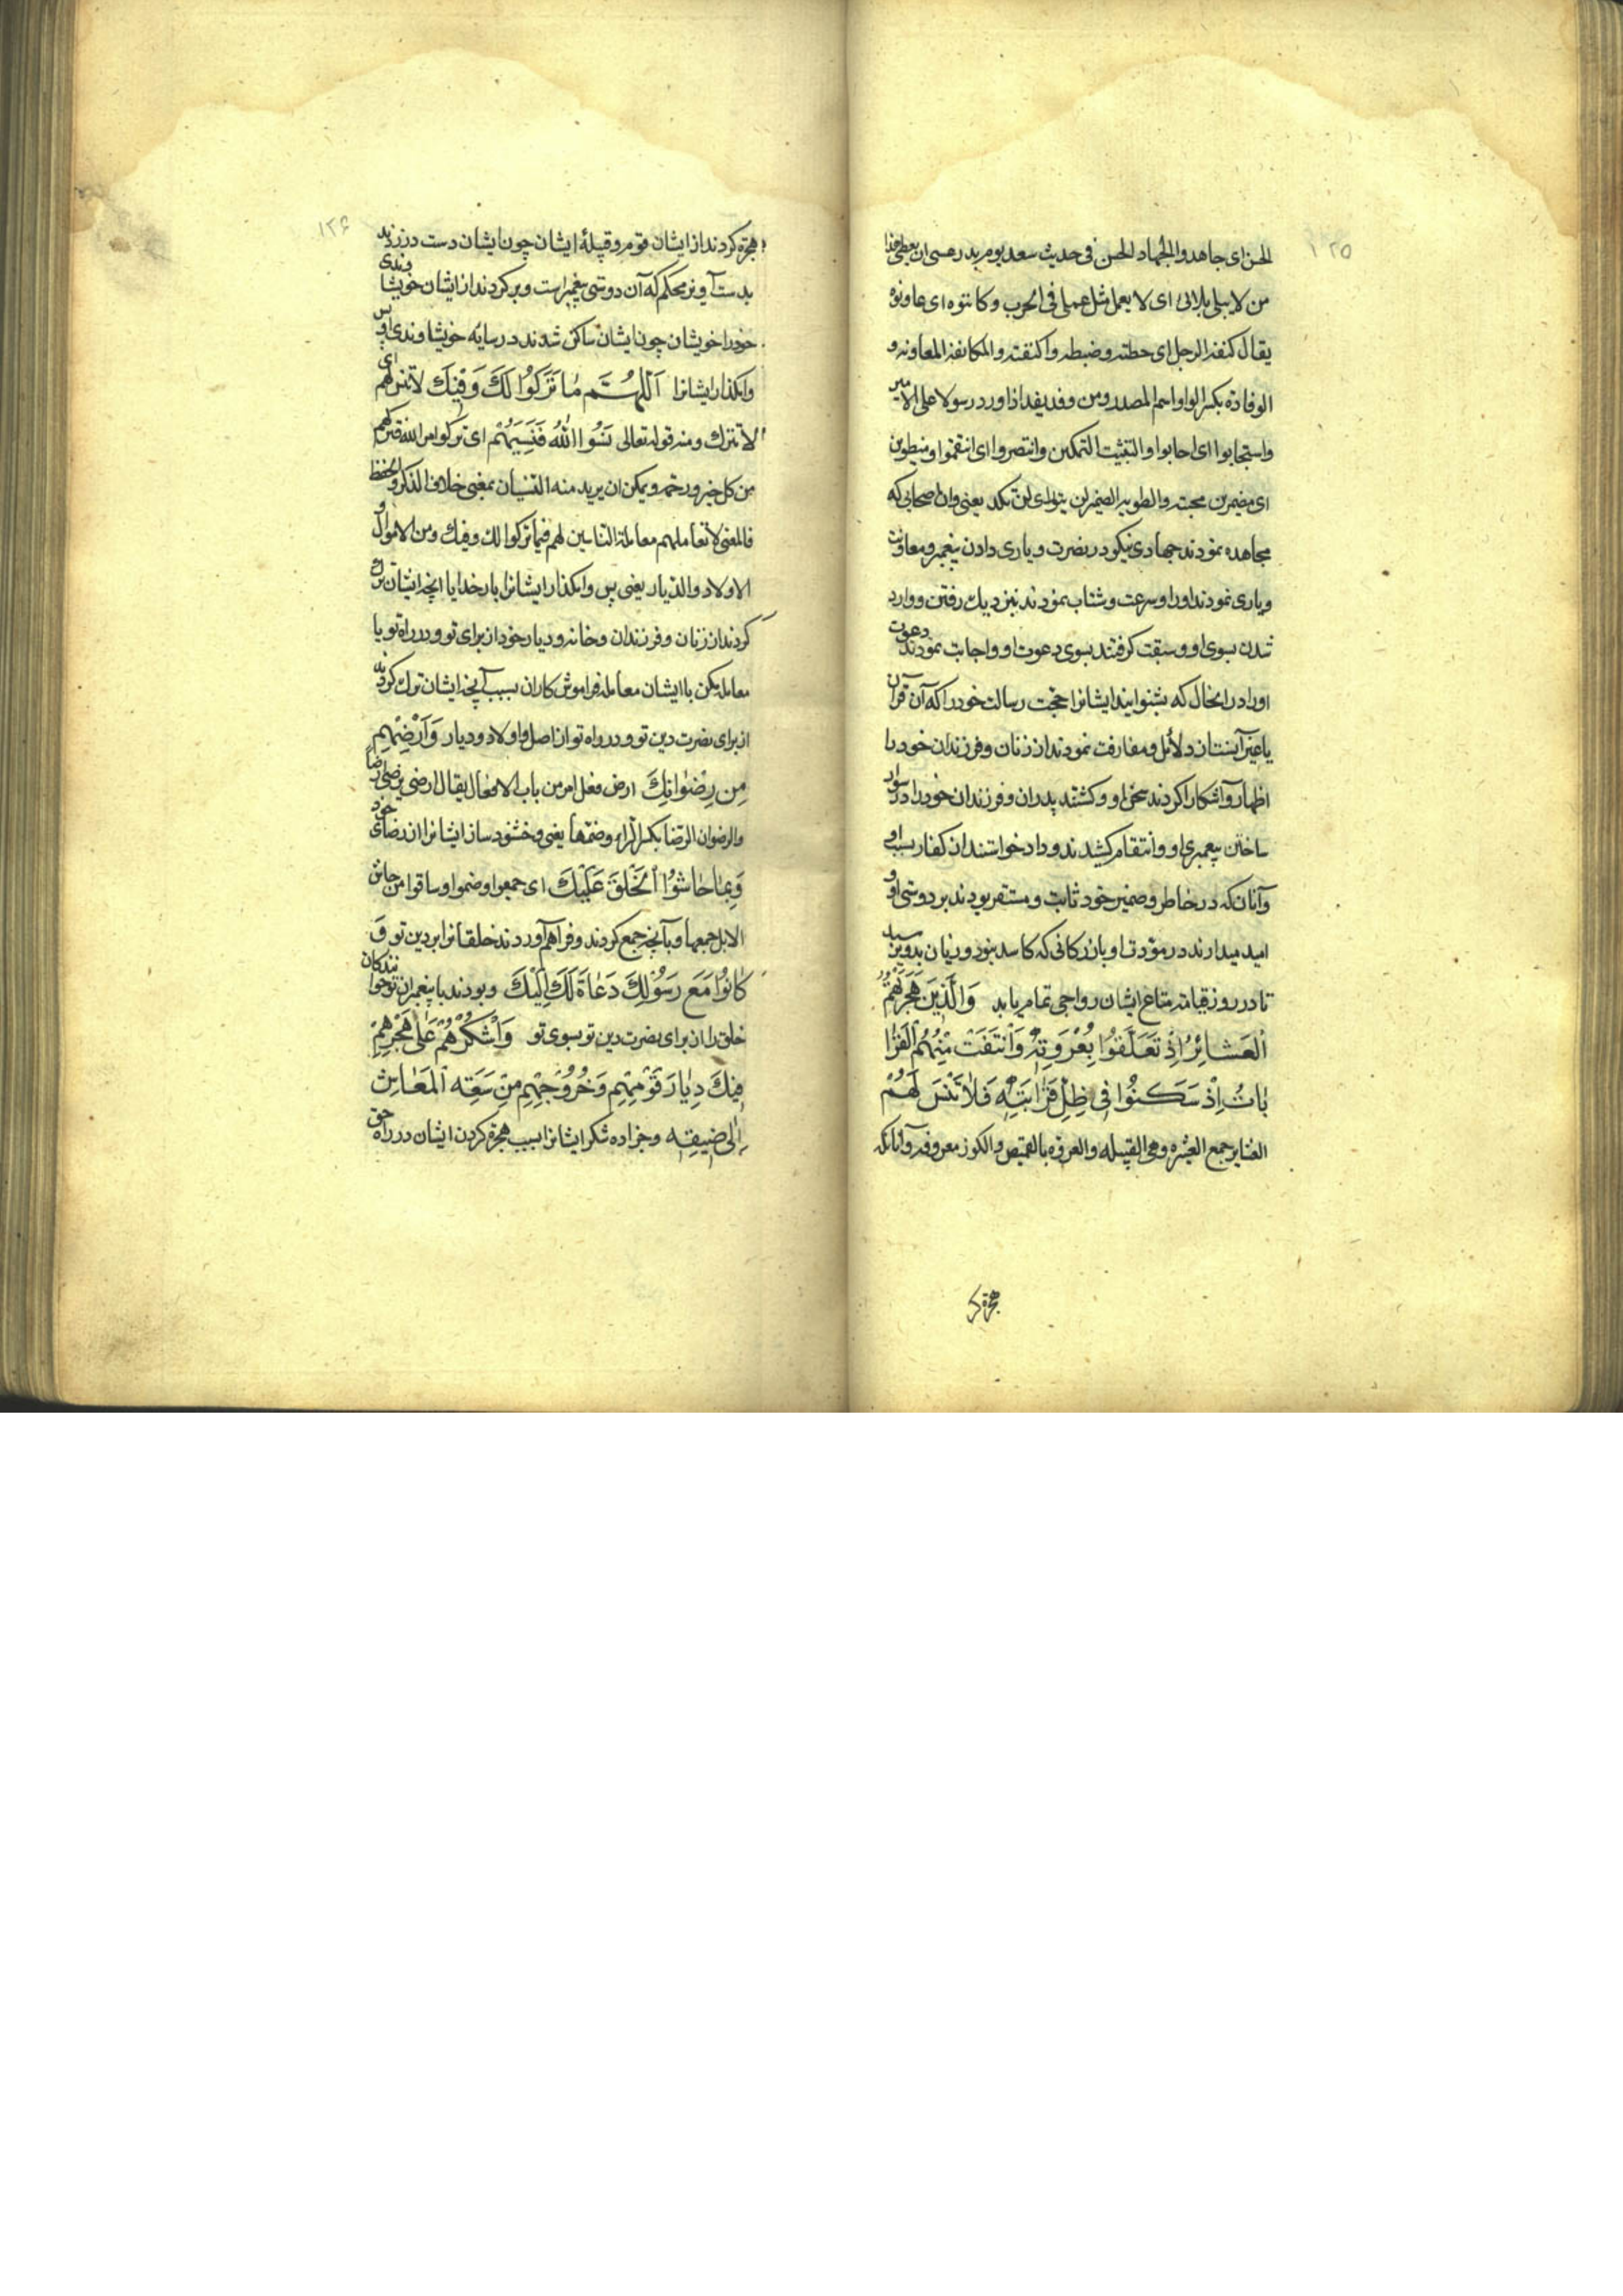 ۱۲۵
الحسن ای جاهدوا الجهاد الحسن فی حدیث سعد یوم بدر عسی ان یعطی هذا
من لا یبلی بلائی ای لا یعمل مثل عملی فی الحرب وکانفوه ای عاونوه
یقال کنفة الرجل ای حطته وضبطه واکنفته والمکانفة المعاونه و
الوفادة بکسر الواو اسم المصدر ومن وفد یفد اذا ورد رسولا علی الامیر
واستجابوا ای اجابوا والتثبیت التمکین وانتصروا ای انتقموا ومنطوین
ای مضمرین محبته والطویه الضمیر لن یتوای لن تکد یعنی وان اصحابی که
مجاهده نمودند جهادی نیکو در نصرت و یاری دادن پیغمبر ومعاونت
ویاری نمودند اورا وسرعت وشتاب نمودند بنزدیک رفتن ووارد
شدن بسوی او وسبقت گرفتند بسوی دعوت او واجابت نمودند دعوت
اورا در انحال که بشنوانید ایشانرا حجت رسالت خود را که آن قرآن
یا غیر آنستاز دلائل ومفارقت نمودند از زنان وفرزندان خود در
اظهار وآشکارا کردند سخن او وکشتند پدران وفرزندان خود را در استوار
ساختن پیغمبری او وانتقام کشیدند وداد خواستند از کفار بسبب او
وآنان که در خاطر وضمیر خود ثابت ومستقر بودند بر دوستی او و
امید میدارند در مودت او بازرگانی که کاسد نبود وزیان بدو نرسد
تا در روز قیامت متاع ایشان رواجی تمام یابد وَالَّذِینَ هَجَرَتْهُمُ
اَلْعَشَائِرُ اِذْ تَعَلَّقُوا بِعُرْوَتِهِ وَانْتَفَتْ مِنْهُمُ الْقَرَا
بَاتُ اِذْ سَکَنُوا فِی ظِلِّ قَرَابَتِهِ فَلَا تَنْسَ لَهُمْ
العشایر جمع العشیره وهی القبیله والعروة بالقمیص والکوز معروفه وآنانکه
هجرة کر
۱۲۶
هجرة کردند از ایشان قوم وقبیلهٔ ایشان چون ایشان دست در زدند
بدست آویز محکم که آن دوستی پیغمبراست وبر کردند از ایشان خویشاوندی
خود را خویشان چون ایشان ساکن شدند در سایه خویشاوندی او پس
وامگذار ایشانرا اَللّٰهُمَّ مَا تَرَکُوا لَکَ وَفِیکَ لا تترکهم ای
لا تترک ومنه قوله تعالی نَسُوا اللّٰهَ فَنَسِیَهُمْ ای ترکوا امر الله فترکهم
من کل خیر ورحمة ویمکن ان یرید منه النسیان بمعنی خلاف الذکر والحفظ
فالمعنی لا تعاملهم معاملة الناسین لهم فیما ترکوا لک وفیک ومن الاموال و
الاولاد والدیار یعنی پس وامگذار ایشانرا بار خدایا انچه ایشان ترک
کردند از زنان وفرزندان وخانه ودیار خود از برای تو ودر راه تو یا
معامله مکن با ایشان معامله فراموش کاران بسبب آنچه ایشان ترک کردند
از برای نصرت دین تو ودر راه تو از اصل واولاد ودیار وَاَرْضِهِمْ
مِن رِضْوَانِکَ ارض فعل امر من باب الافعال یقال ارضی یرضی ارضا
والرضوان الرضا بکسر الراء وضمها یعنی وخشنود ساز ایشانرا از رضای خود
وَبِمَا حَاشُوا الْخَلْقَ عَلَیْکَ ای جمعوا وضموا وساقوا من حاش
الابل جمعها وبآنچه جمع کردند وفراهم آوردند خلقانرا بر دین تو وَ
کَانُوا مَعَ رَسُولِکَ دُعَاةً لَکَ اِلَیْکَ وبودند با پیغمبران تو خوانندکان
خلق را از برای نصرت دین تو بسوی تو وَاشْکُرْهُمْ عَلٰی هَجْرِهِمْ
فِیکَ دِیَارَ قَوْمِهِمْ وَخُرُوجِهِمْ مِنْ سَعَةِ الْمَعَاشِ
اِلٰی ضِیقِهِ وجزا ده شکر ایشانرا بسبب هجرة کردن ایشان در راه حق